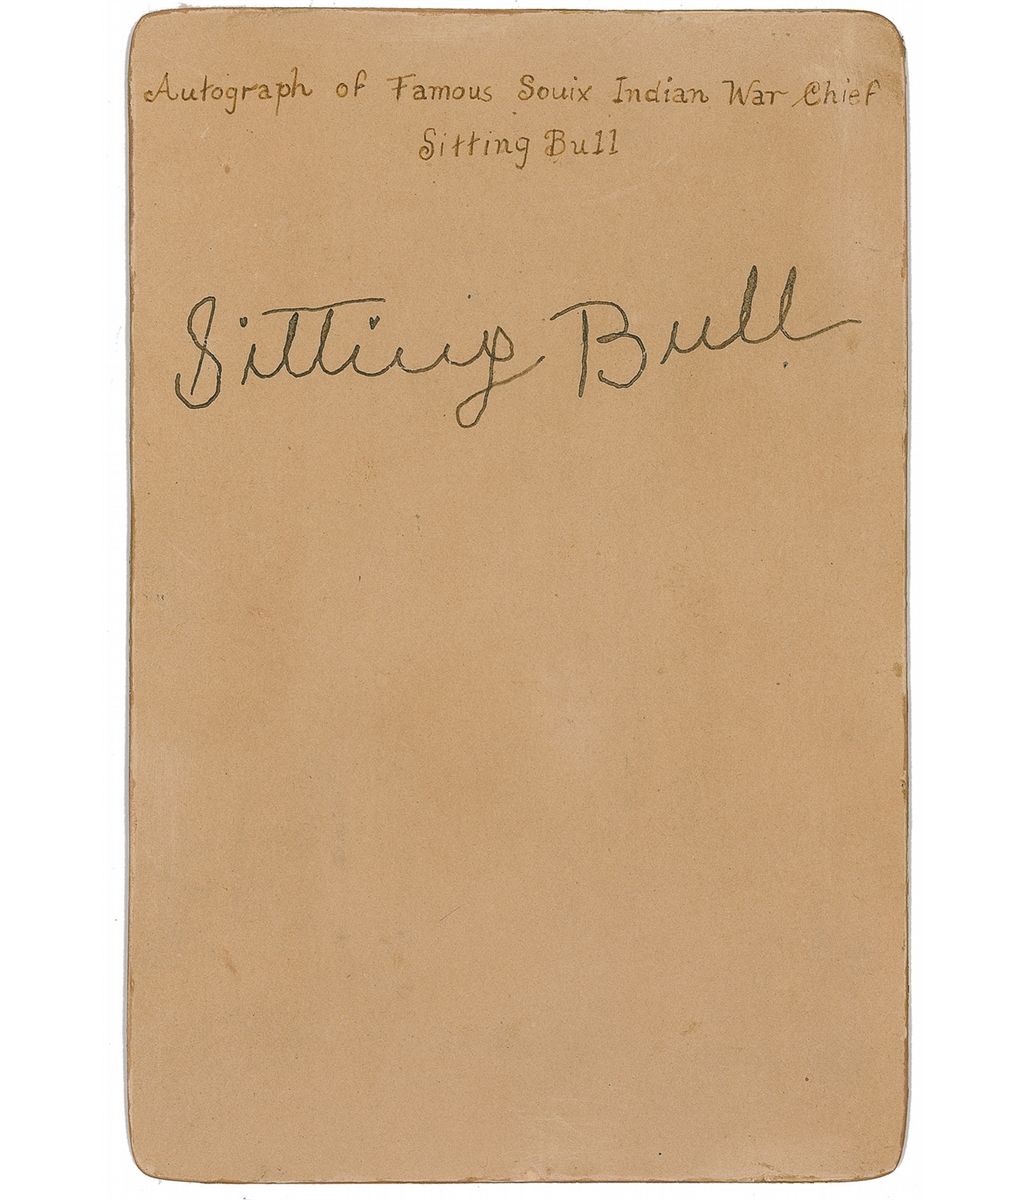 Autograph of Famous Souix Indian War Chief
Sitting Bull
Sitting Bull